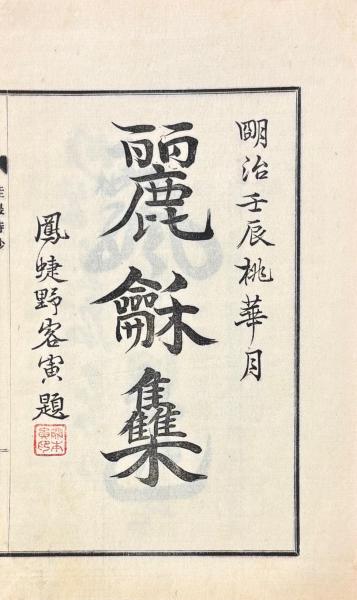 明治壬辰桃華月
麗龢集
鳳蜨野客寅題